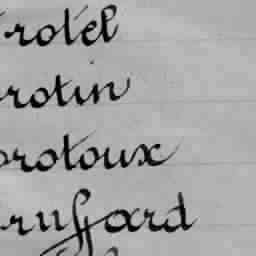 rotel
rotin
rotoux
ruffard